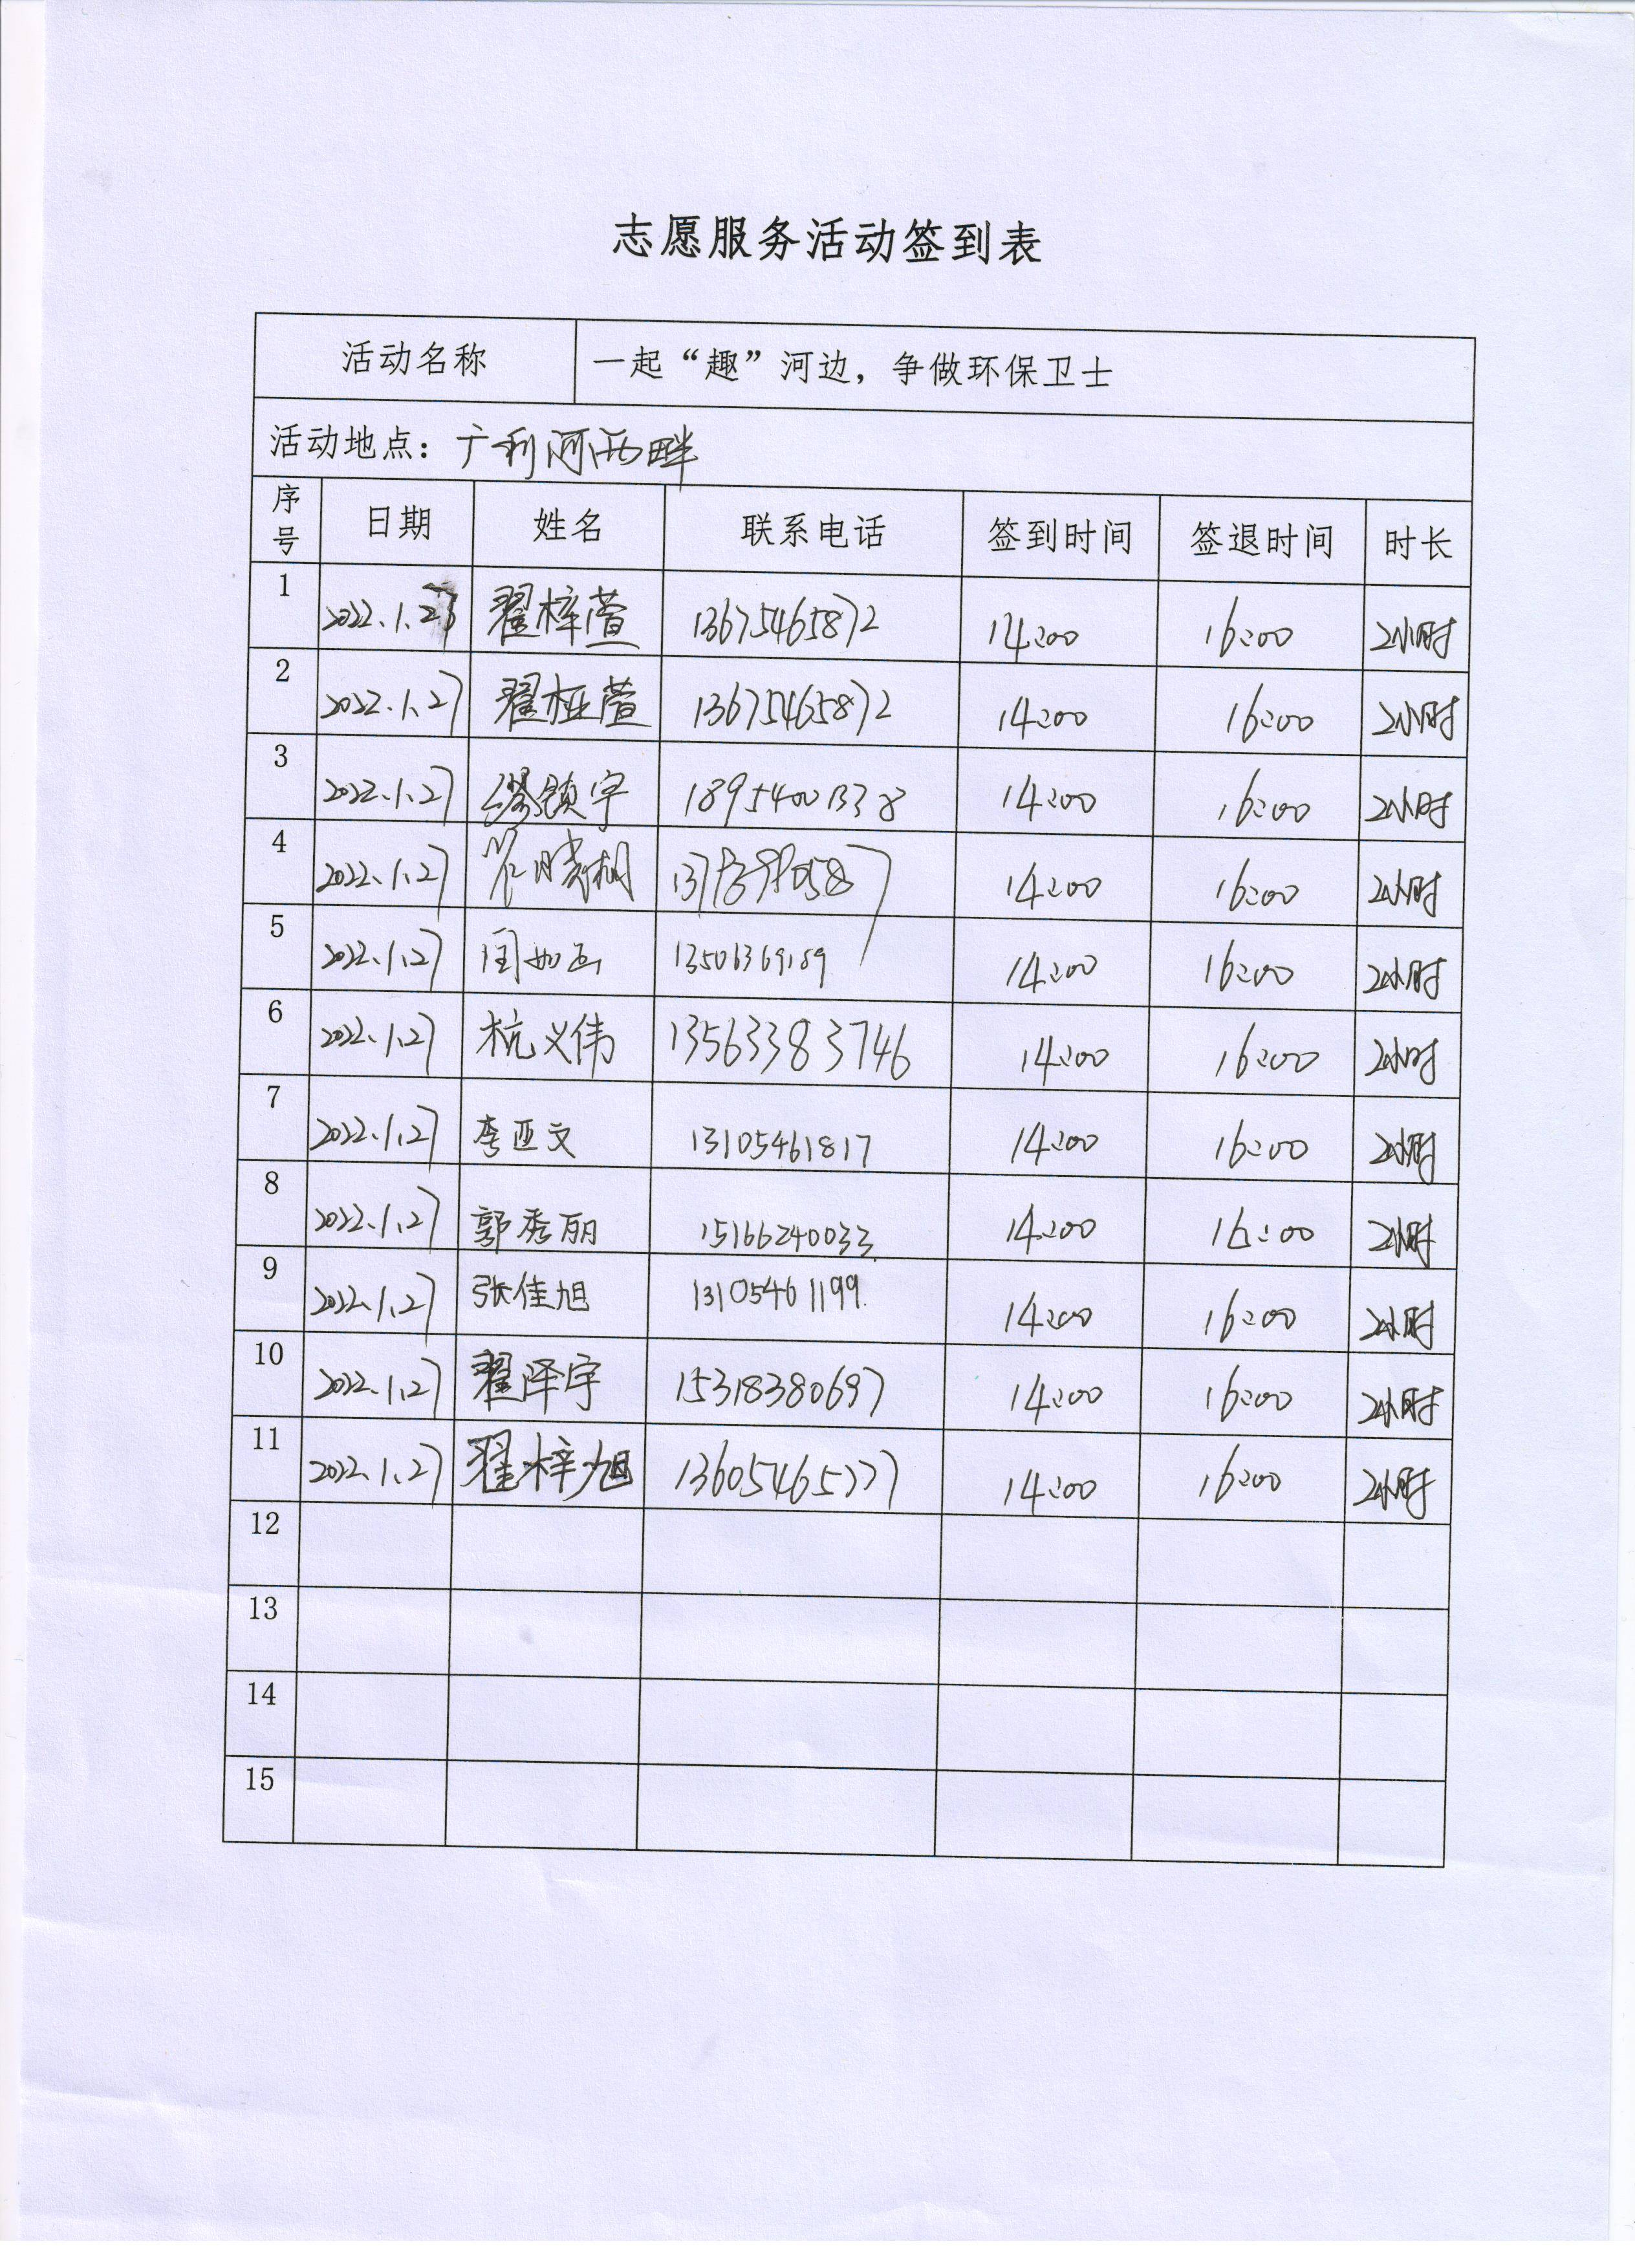 志愿服务活动签到表
活动名称 一起“趣”河边，争做环保卫士
活动地点：广利河西畔
序号 日期 姓名 联系电话 签到时间 签退时间 时长
1 2022.1.27 翟梓萱 13675465872 14:00 16:00 2小时
2 2022.1.27 翟桠萱 13675465872 14:00 16:00 2小时
3 2022.1.27 缪镇宇 18954001338 14:00 16:00 2小时
4 2022.1.27 14:00 16:00 2小时
5 2022.1.27 13506369189 14:00 16:00 2小时
6 2022.1.27 杭义伟 13563383746 14:00 16:00 2小时
7 2022.1.27 李亚文 13105461817 14:00 16:00 2小时
8 2022.1.27 郭秀丽 15166240033 14:00 16:00 2小时
9 2022.1.27 张佳旭 13105461199 14:00 16:00 2小时
10 2022.1.27 翟泽宇 15318380697 14:00 16:00 2小时
11 2022.1.27 翟梓旭 13605465777 14:00 16:00 2小时
12
13
14
15